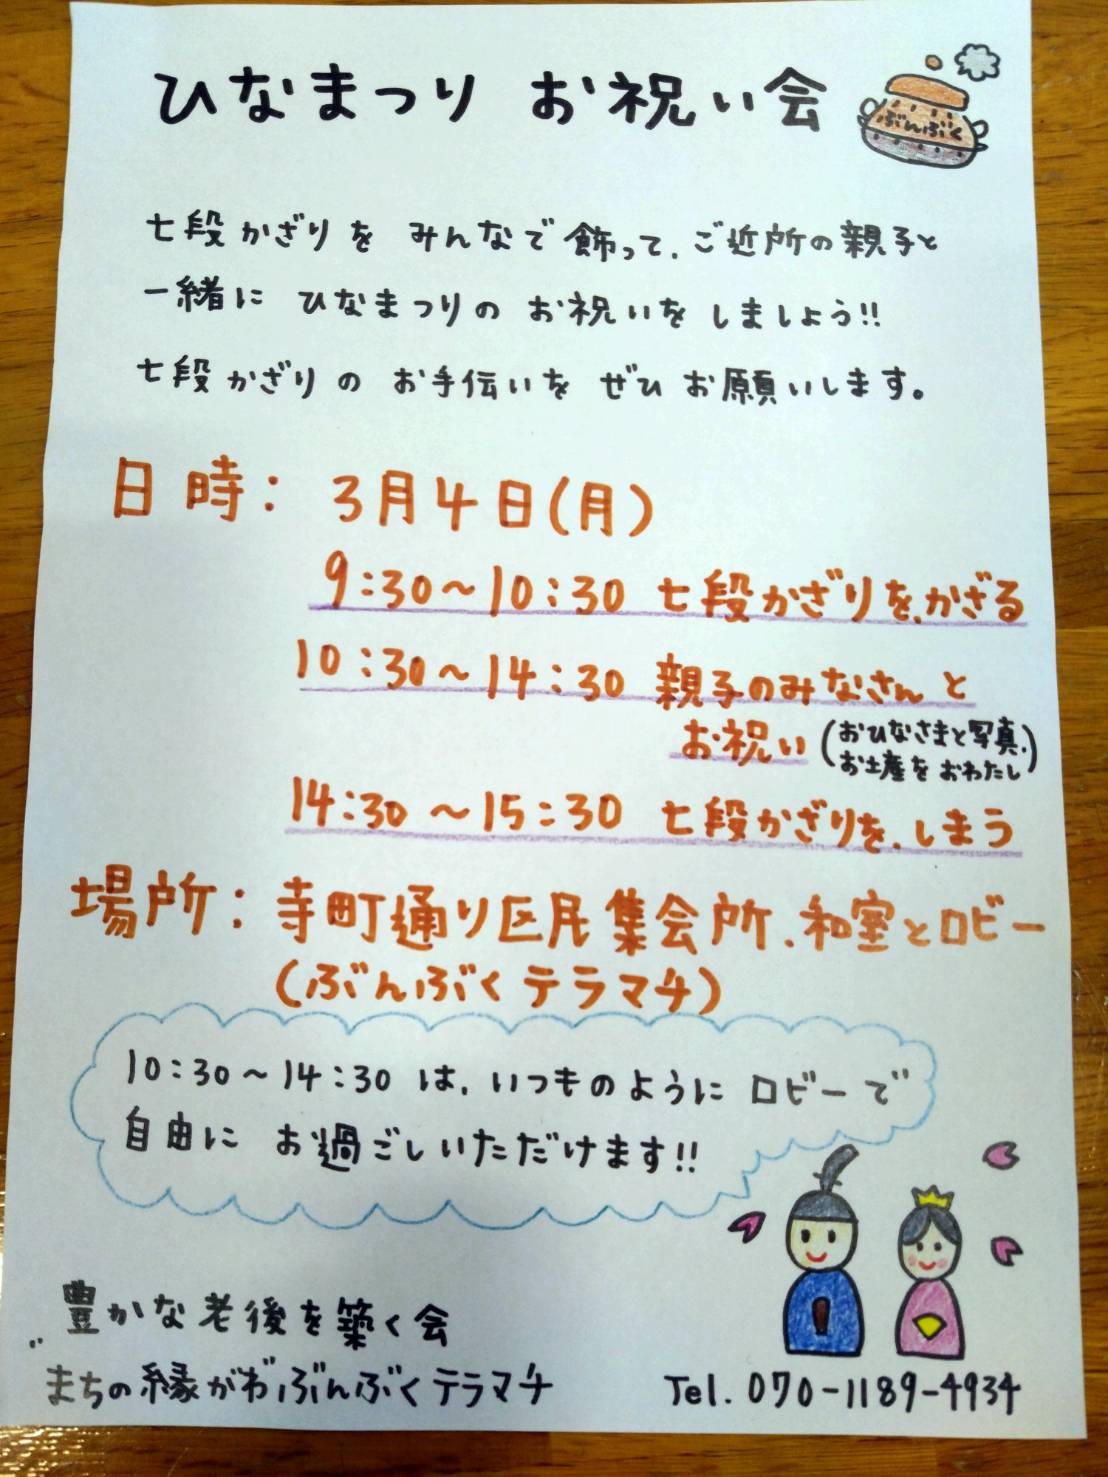 ひなまつり お祝い会
ぶんぶく
七段かざりを みんなで飾って、ご近所の親子と
一緒に ひなまつりの お祝いを しましょう!!
七段かざりの お手伝いを ぜひ お願いします。
日時: 3月4日(月)
9:30〜10:30 七段かざりを、かざる
10:30〜14:30 親子のみなさんと
お祝い(おひなさまと写真、
お土産を おわたし)
14:30〜15:30 七段かざりを、しまう
場所: 寺町通り区民集会所、和室とロビー
(ぶんぶくテラマチ)
10:30〜14:30 は、いつものように ロビーで
自由に お過ごしいただけます!!
豊かな老後を築く会
〃まちの縁がわ〃ぶんぶくテラマチ
Tel. 070-1189-4934